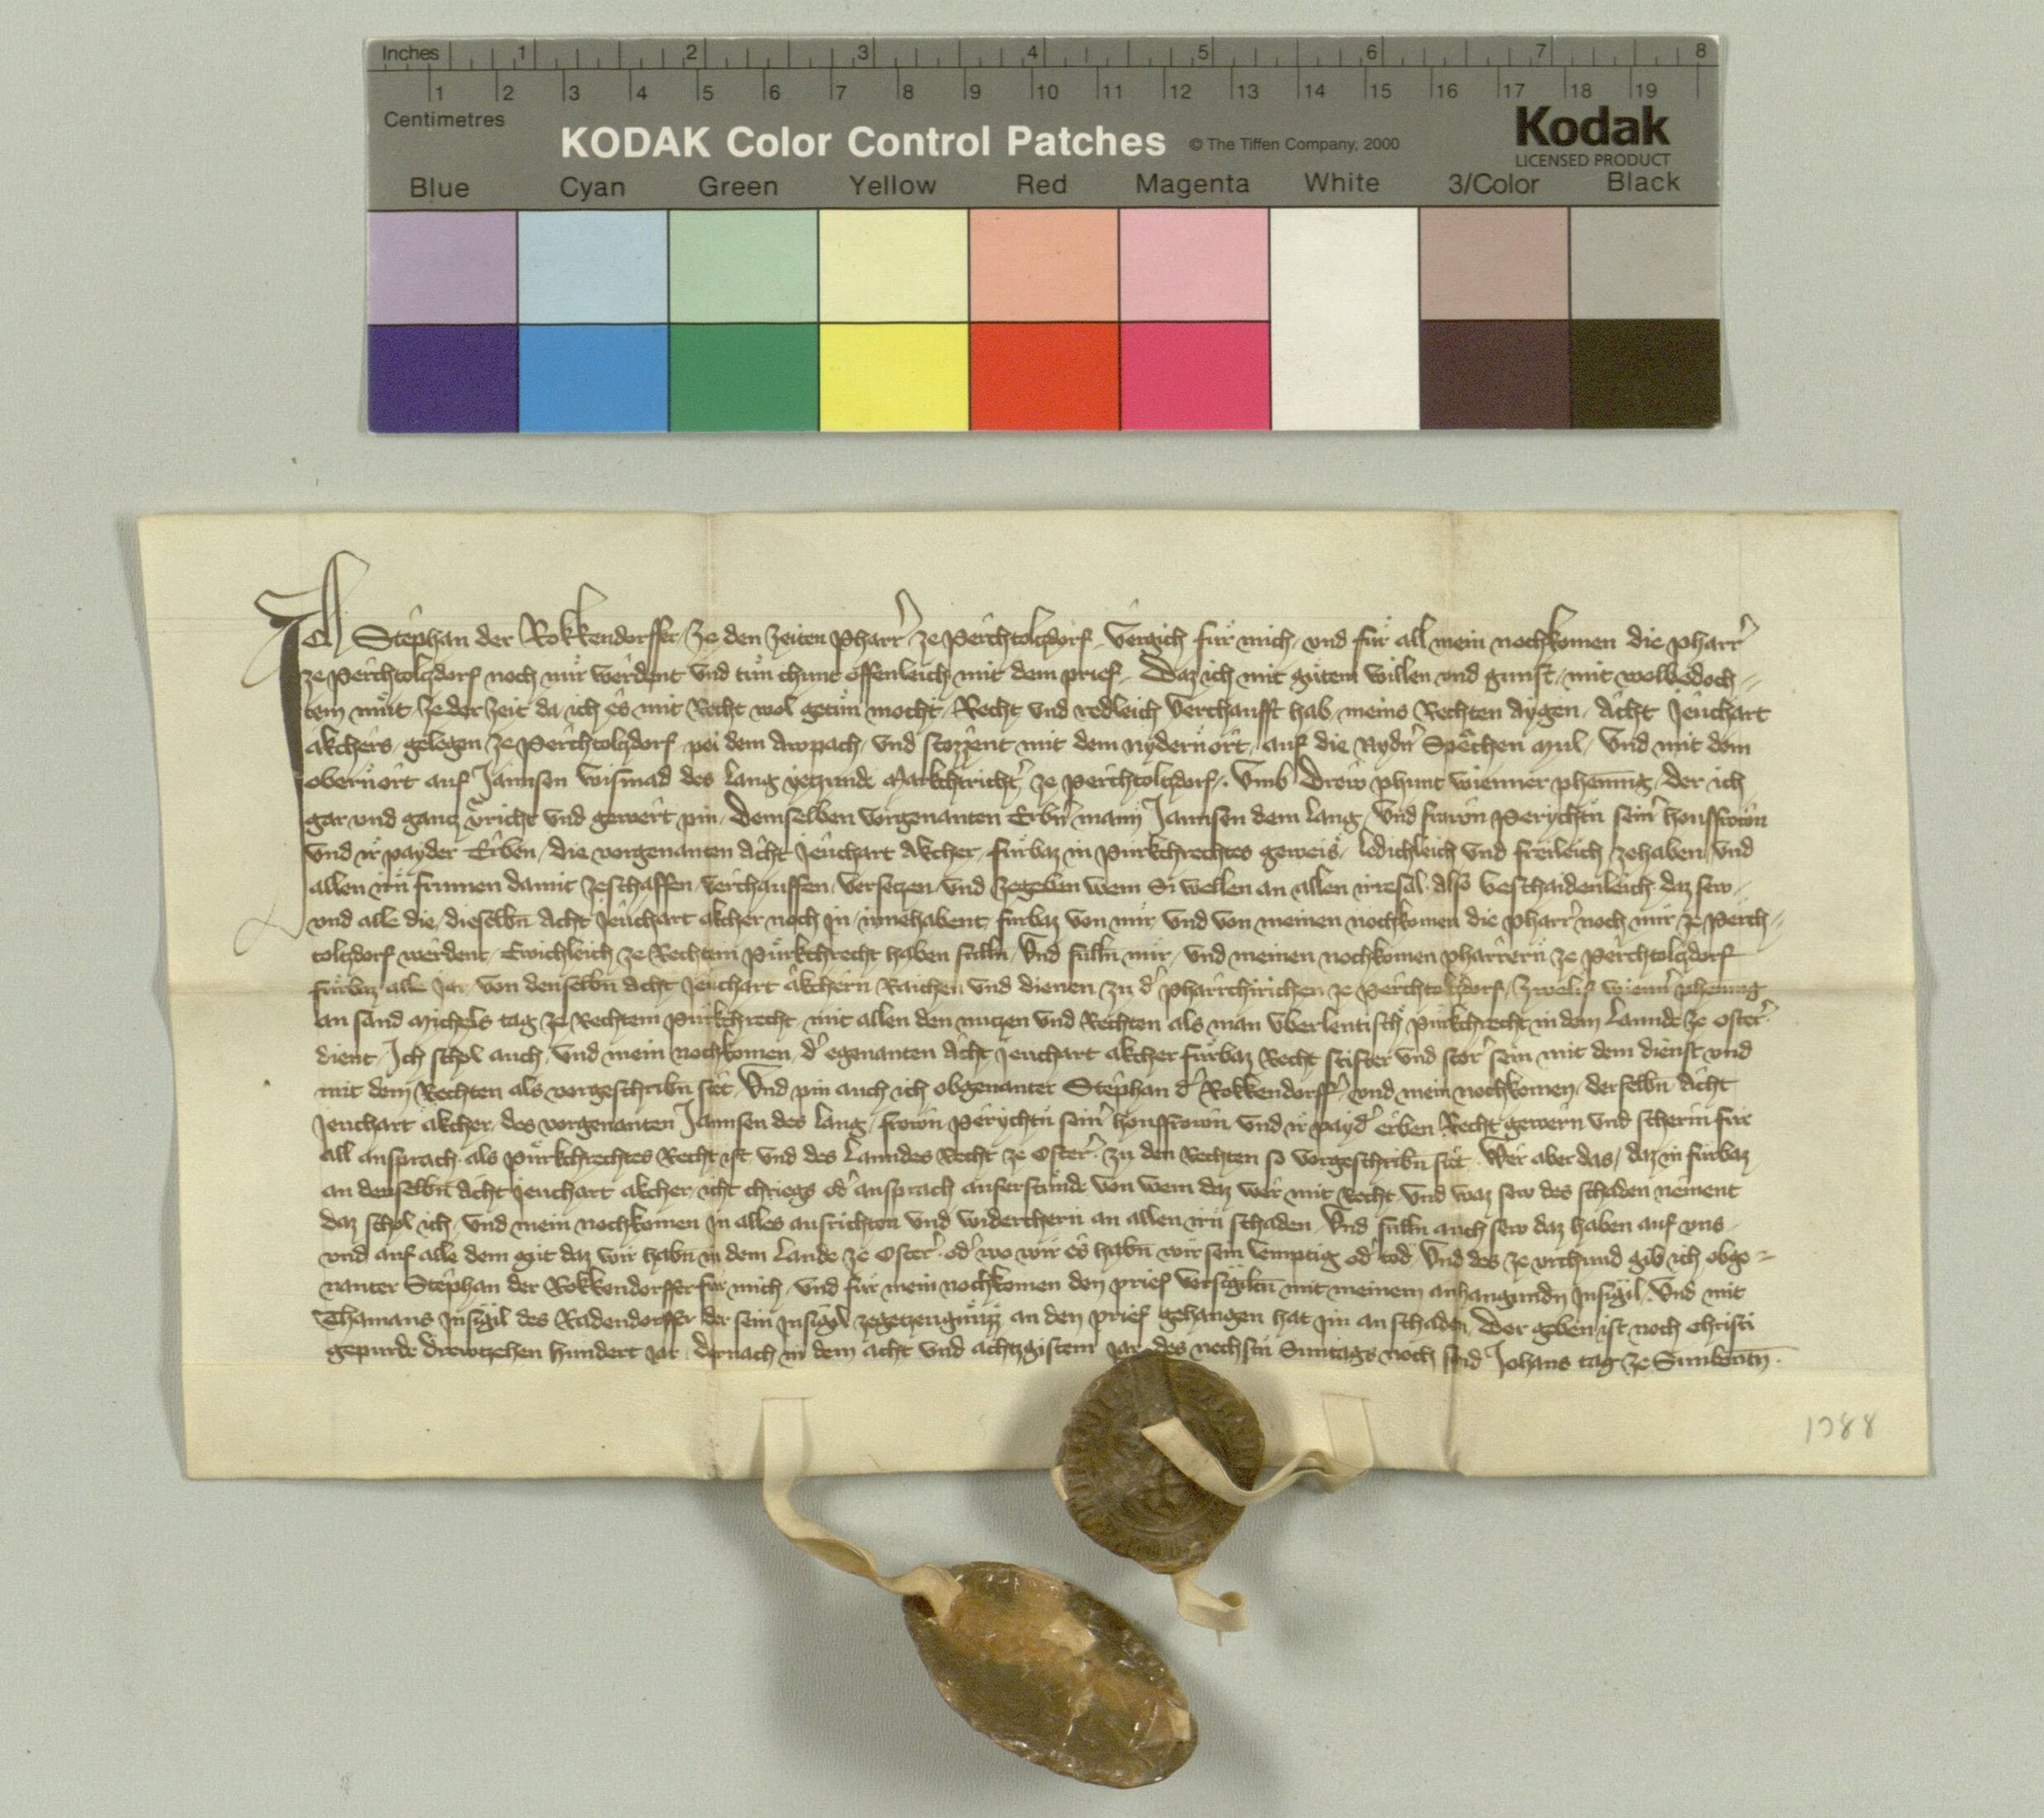 Inches 1 2 3 4 5 6 7 8
1 2 3 4 5 6 7 8 9 10 11 12 13 14 15 16 17 18 19
Centimetres
KODAK Color Control Patches © The Tiffen Company, 2000
Kodak
LICENSED PRODUCT
Blue Cyan Green Yellow Red Magenta White 3/Color Black
Ich Stephan der Rokkendorffer ze den zeiten Pharr̕ ze Perchtolczdorf vergich für mich und für all mein nochkomen die pharr̕
ze Perchtolczdorf noch mir werdent und tün chunt offenleich mit dem prief Daz ich mit gütem willen und gunst mit wolbedoch-
tem müt ze der zeit da ich es mit Recht wol getün mocht Recht und redleich verchaufft hab meins Rechten Aygen Acht Jeuchart
akchers gelegen ze Perchtolczdorf pei dem Awpach und stozzent mit dem nydern ort auf die Nydn̕ Spechen mul und mit dem
obern ort auf Jannsen wismad des Lang yeczunde Markchtricht̕ ze Perchtolczdorf umb Drew phunt wienner phenning der ich
gar und gancz v̕richt und gewert pin Demselben vorgenanten Erbn̕ mann Jannsen dem Lang und frawn Perychtn sein̕ hausfrown
und ir payder Erben die vorgenanten Acht Jeuchart Akcher fürbaz in Purkchrechtes geweis ledichleich und freileich zehaben und
allen irn frumen damit zeschaffen verchauffen verseczen und zegeben wem Si wellen an allen irresal also beschaidenleich daz sew
und alle die dieselbn̄ Acht Jeuchart akcher noch in innehabent fürbaz von mir und von meinen nochkomen die pharr̕ noch mir ze Perch-
tolczdorf werdent Ewichleich ze Rechtem Purkchrecht haben sulln Und sulln mir und meinen nochkomen pharrern ze Perchtolczdorf
fürbaz alle Jar von denselbn̄ Acht Jeuchart akchern Raichen und dienen zu d̕ pharrchirichen ze Perchtolczdorf Zwelif wienn̕ phening
an sand Michels tag ze Rechtem purkchrecht mit allen den nuczen und Rechten als man uberlentisch purkchrecht in dem Lannde ze Oster̕
dient Ich schol auch und mein nochkomen d̕ egenanten Acht Jeuchart akcher fürbaz Recht stifter und stör̕ sein mit dem dienst und
mit dem Rechten als vorgeschribn̄ stet Und pin auch ich obgenanter Stephan d̕ Rokkendorff̕ und mein nochkomen derselbn̄ Acht
Jeuchart akcher des vorgenanten Jannsen des Lang frown Perychtn sein̕ hausfrown und ir payd̕ erben Recht gewern und scherm für
all ansprach als purkchrechtes Recht ist und des Lanndes Recht ze Oster̕ zu den Rechten so vorgeschribn̄ stet Wer aber das daz in fürbaz
an denselbn̄ Acht Jeuchart akcher icht chriegs od̕ ansprach auferstunde von wem daz wer mit Recht und waz sew des schaden nement
daz schol ich und mein nochkomen in alles ausrichten und widerchern an allen irn schaden Und sulln auch sew daz haben auf uns
und auf alle dem güt daz wir habn̄ in dem Lande ze Oster̕ od̕ wo wir es habn̄ wir sein lemptig od̕ tod Und des ze urchund gib ich obge-
nanter Stephan der Rokkendorffer für mich und für mein nochkomen den prief versigiltn̄ mit meinem anhangundn Insigil Und mit
Thamans Insigil des Radendorffer der sein Insigil zegeczeugnüzz an den prief gehangen hat im an schaden Der geben ist noch Christi
gepurde Drewczehen hundert Jar dernach in dem acht und achtzgistem Jar des nechstn Suntags noch sand Johans tag ze Sunibentn̄
1388